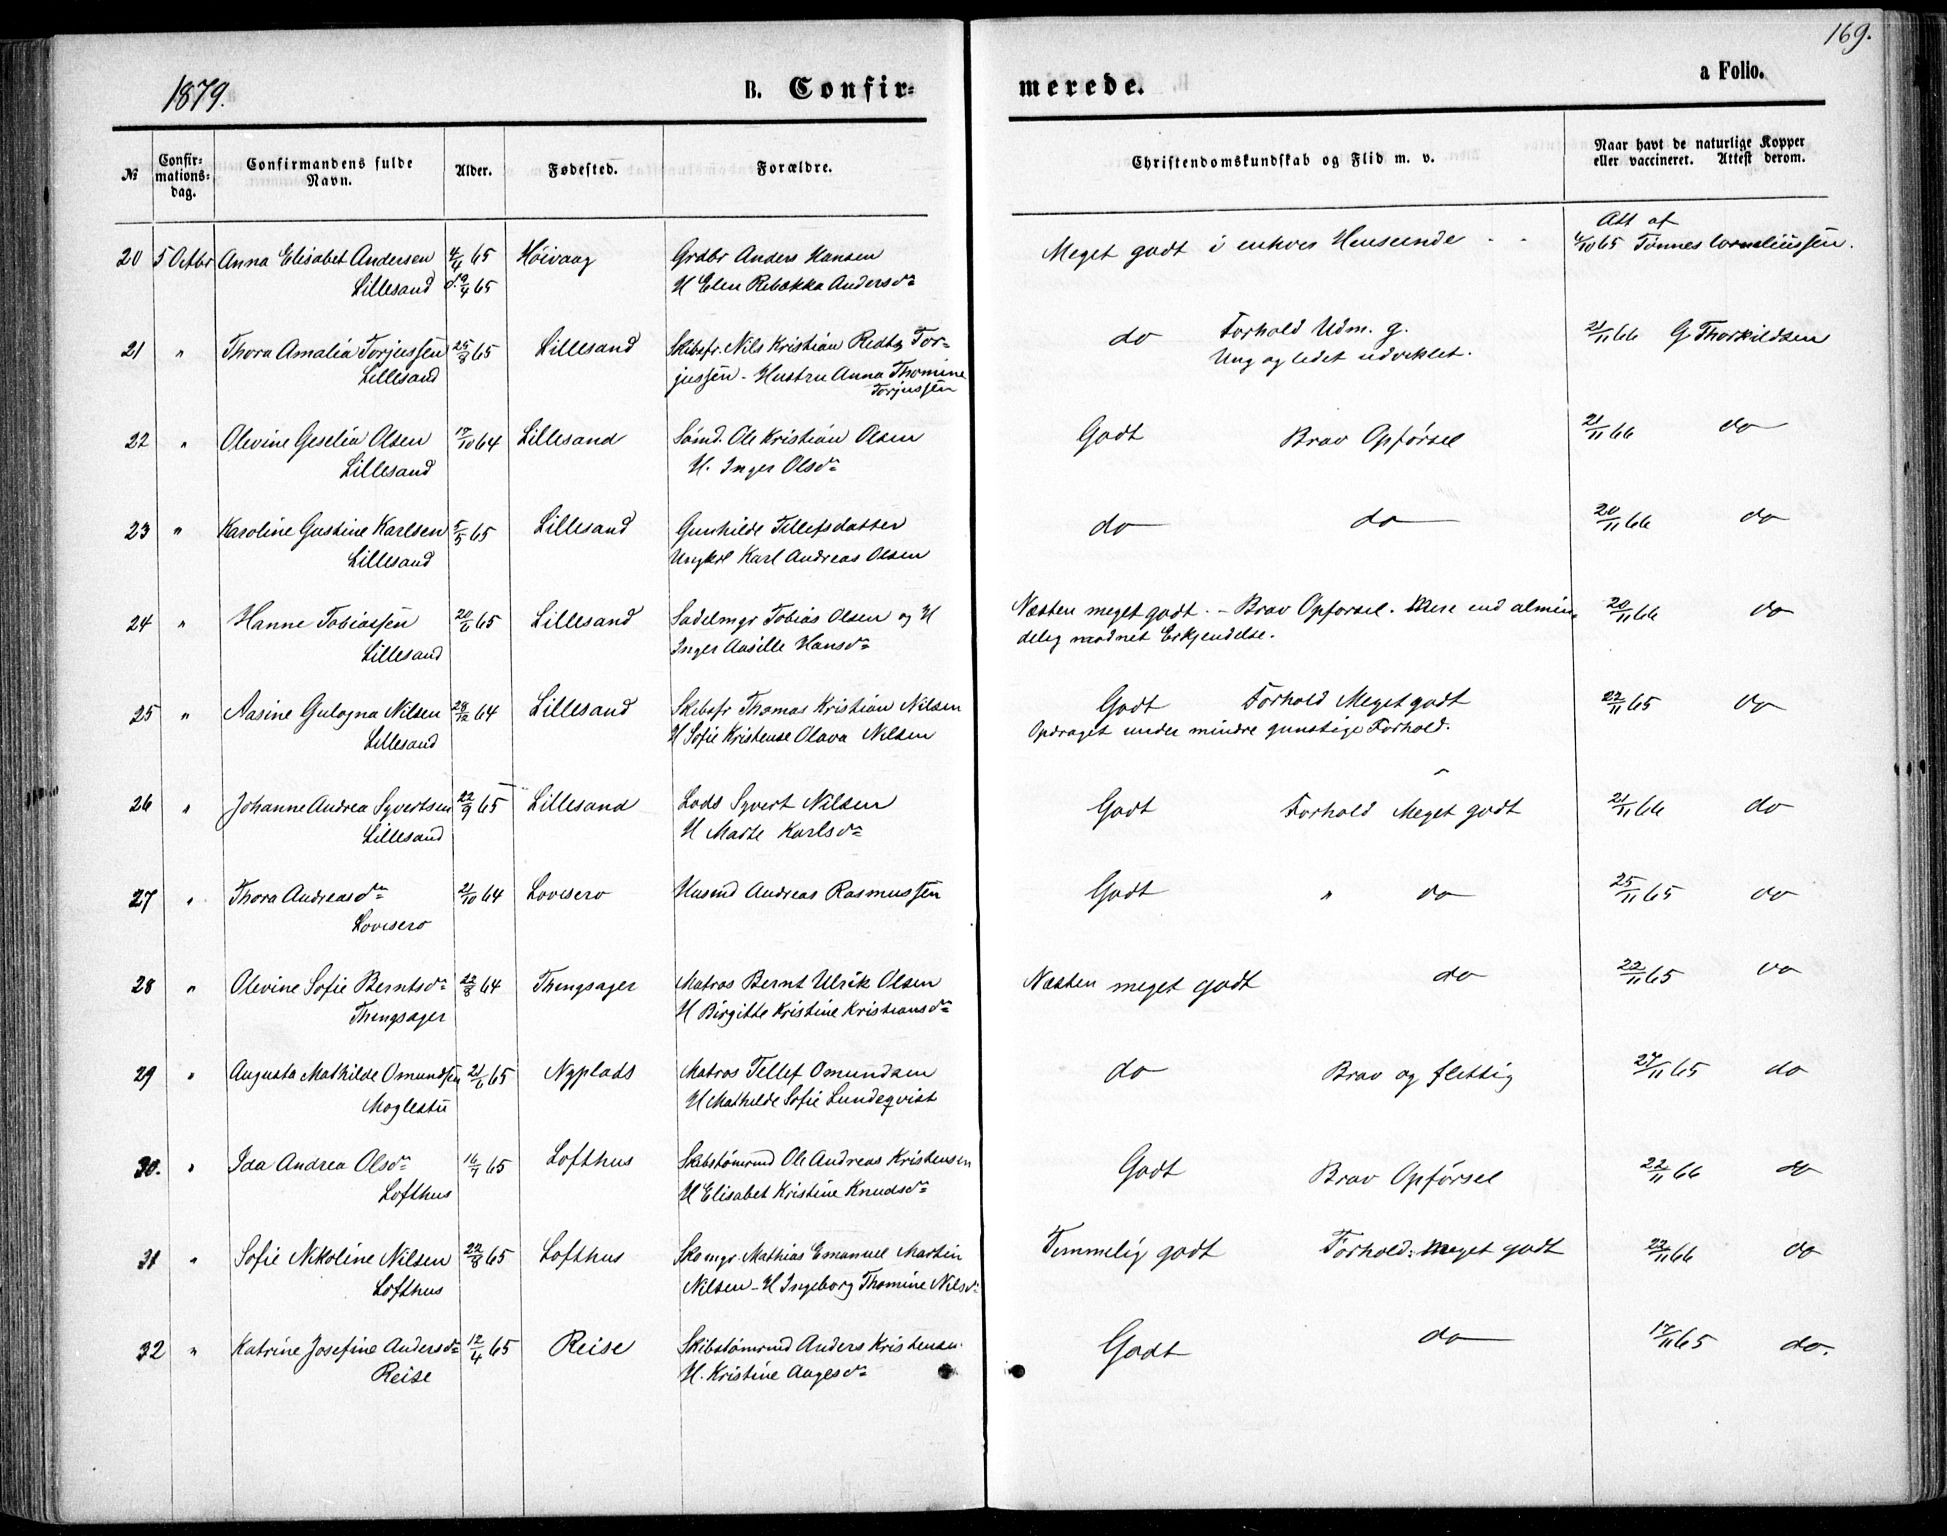 169.
1879.
B. Confir=
merede.
a Folio.
№
Confir=
mations=
dag.
Confirmandens fulde
Navn.
Alder.
Fødested.
Forældre.
Christendomskundskab og Flid m. v.
Naar havt de naturlige Kopper
eller vaccineret. Attest derom.
20 5 Octbr Anna Elisabet Andersen 4/4 65 Höivaag Grdbr Anders Hansen Meget godt i enhver Henseende 4/10 65 Att af Tønnes Corneliussen.
Lillesand d. 10/4 65 H Elen Rebekka Andersdr
21 " Thora Amalia Torjussen 25/8 65 Lillesand Skibsfr. Nils Kristian Redtz Tor- do Forhold Udm. g. 21/11 66 G Thorkildsen
Lillesand jussen - Hustru Anna Thomine Ung og ledet udviklet.
Torjussen
22 " Olevine Geselia Olsen 17/10 64 Lillesand Sømd. Ole Kristian Olsen Godt Brav Opførsel 21/11 66 do
Lillesand H. Inger Olsdr
23 " Karoline Gustine Karlsen 5/5 65 Lillesand Gunhilde Tellefsdatter do do 20/11 66 do
Lillesand Ungkrl Karl Andreas Olsen
24 " Hanne Tobiassen 20/6 65 Lillesand Sadelmgr Tobias Olsen og H Næsten meget godt. - Brav Opførsel. Mere end almin- 20/11 66 do
Lillesand Inger Aasille Hansdr delig modnet Erkjendelse.
25 " Aasine Gulogna Nilsen 28/12 64 Lillesand Skibsfr Thomas Kristian Nilsen Godt Forhold Meget godt 22/11 65 do
Lillesand H Sofie Kristense Olava Nilsen Opdraget under mindre gunstige Forhold.
26 " Johanne Andrea Syvertsen 22/9 65 Lillesand Lods Syvert Nilsen Godt Forhold Meget godt 21/11 66 do
Lillesand H Marte Karlsdr
27 " Thora Andreasdr 21/10 64 Lovisero Husmd Andreas Rasmussen Godt " do 25/11 65 do
Lovisero
28 " Olevine Sofie Berntsdr 22/8 64 Thingsager Matros Bernt Ulrik Olsen Næsten meget godt do 22/11 65 do
Thingsager H Birgitte Kristine Kristiansdr
29 " Augusta Mathilde Omundsen 21/6 65 Nyplads Matros Tellef Omundsen do Brav og flittig 27/11 65 do
Moglestu H Mathilde Sofie Lundeqvist
30. " Ida Andrea Olsdr 16/7 65 Lofthus Skibstømrmd Ole Andreas Kristensen Godt Brav Opførsel 22/11 66 do
Lofthus H Elisabet Kristine Knudsdr
31 " Sofie Nikoline Nilsen 22/8 65 Lofthus Skomgr. Mathias Emanuel Martin Temmelig godt Forhold: Meget godt 22/11 66 do
Lofthus Nilsen - H Ingeborg Thomine Nilsdr
32 " Katrine Josefine Andersdr 12/4 65 Reise Skibstømrmd Anders Kristensen. Godt do 17/11 65 do.
Reise H. Kristine Aagesdr